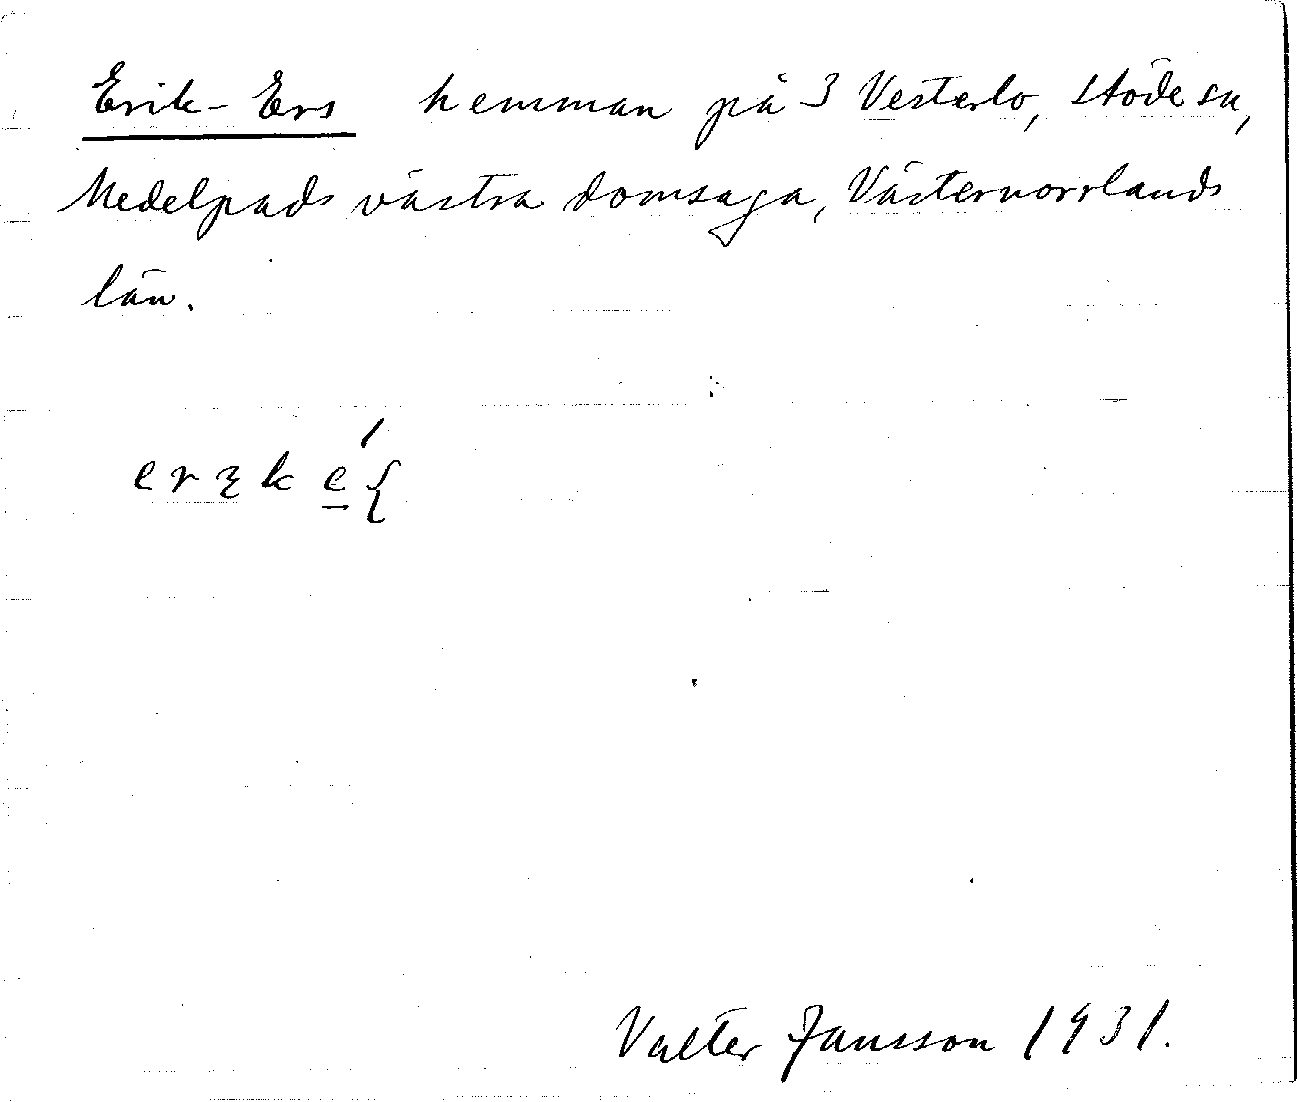 Erik-Ers hemman på 3 Vesterlo, Stöde sn,
Medelpads västra domsaga, Västernorrlands
län.
Valter Jansson 1931.